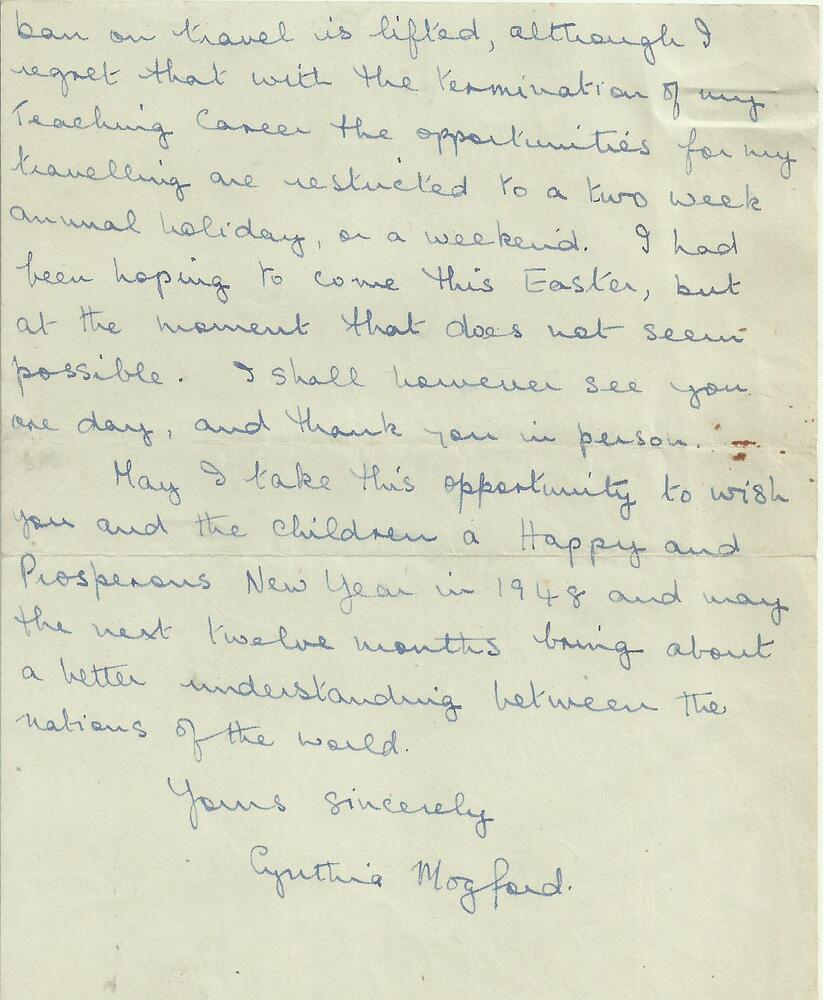 ban on travel is lifted, although I
regret that with the termination of my
Teaching Career the opportunities for my
travelling are restricted to a two week
annual holiday, or a weekend. I had
been hoping to come this Easter, but
at the moment that does not seem
possible. I shall however see you
one day, and thank you in person.
May I take this opportunity to wish
you and the children a Happy and
Prosperous New Year in 1948 and may
the next twelve months bring about
a better understanding between the
nations of the world.
Yours sincerely
Cynthia Mogford.